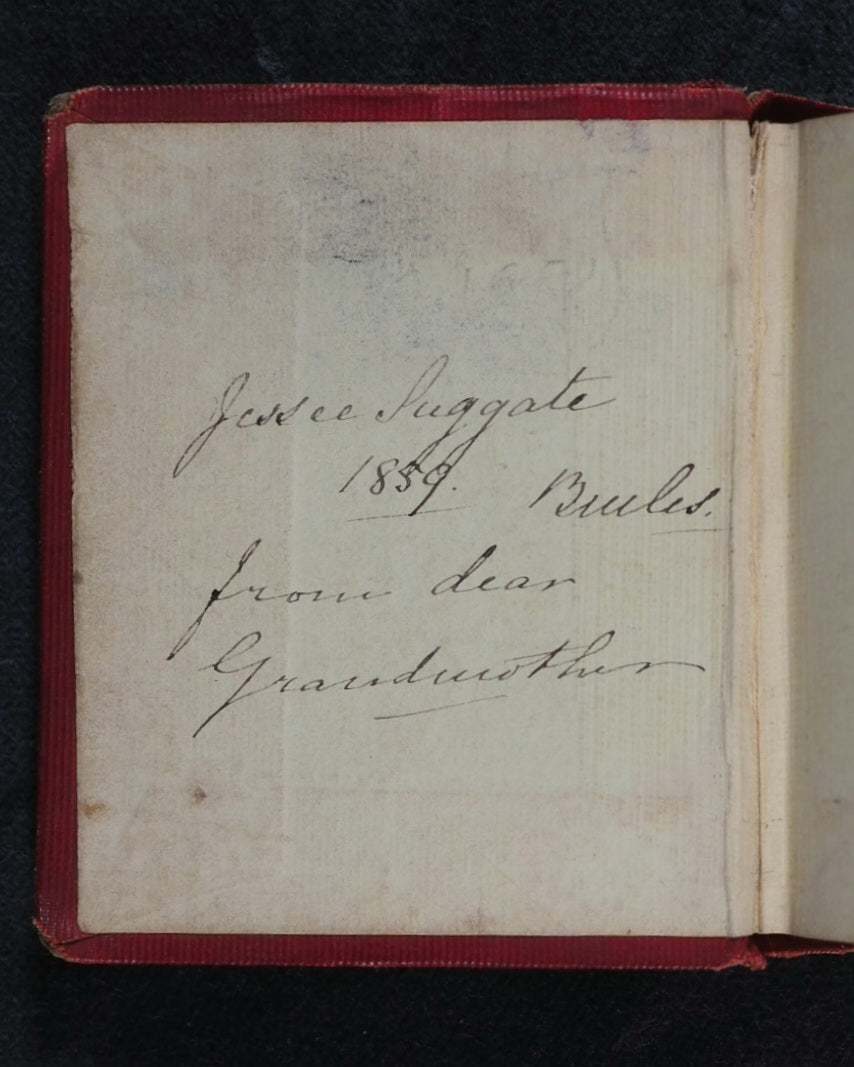 Jessee Suggate
1859.
from dear
Grandmother